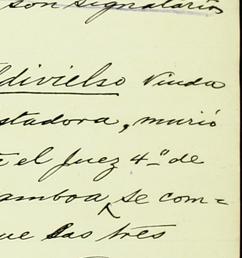 son signatarios
ldivielso Viuda
stadora, murió
te el Juez 4º de
amboa, se com=
ue las tres